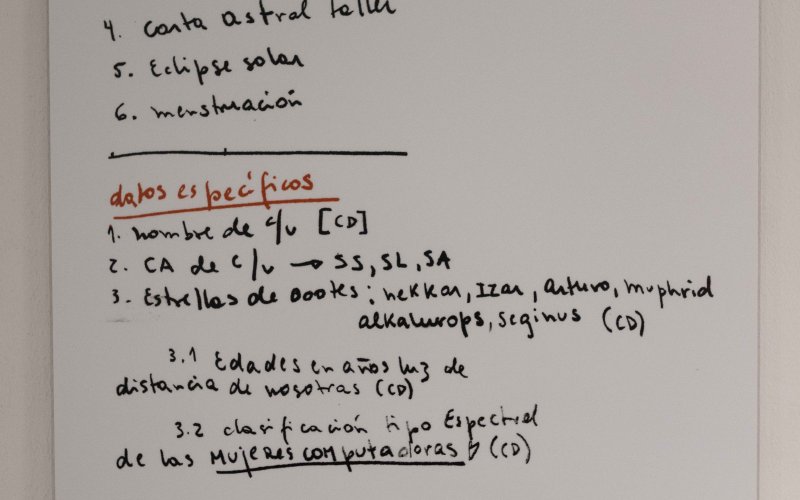 4. Carta astral taller
5. Eclipse solar
6. menstruación
datos específicos
1. nombre de c/u [CD]
2. CA de c/u → SS, SL, SA
3. Estrellas de Bootes: nekkar, Izar, arturo, muphrid
alkalurops, seginus (CD)
3.1 Edades en años luz de
distancia de nosotras (CD)
3.2 clasificación tipo Espectral
de las Mujeres computadoras (CD)